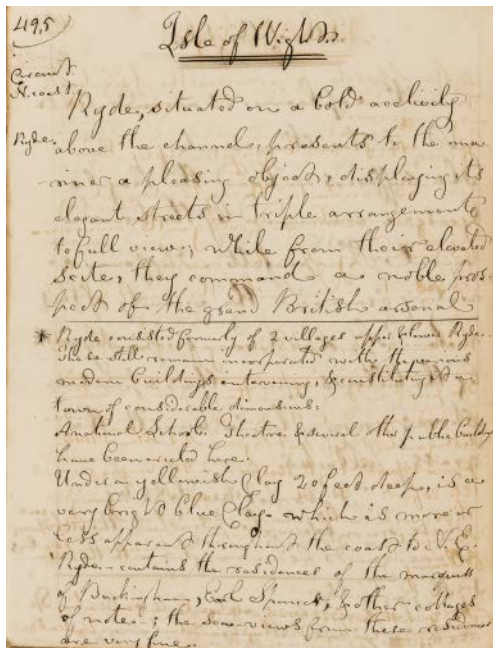 495)
Isle of Wight.
Circuit.
N. coast.
Ryde.
Ryde, situated on a bold acclivity
above the channel, presents to the ma
-riner a pleasing object, displaying its
elegant streets in triple arrangement
to full view; while from their elevated
scite, they command a noble pros-
pect of the grand British arsenal
* Ryde consisted formerly of 2 villages upper & lower Ryde.
These still remain incorporated with the
modern buildings intervening, & constituting a
town of considerable dimensions.
A national School. Theatre & several other public buildings
have been erected here.
Under a yellowish Clay 20 feet deep, is a
very bright blue Clay. which is more or
less apparent throughout the coast to N. E.
Ryde contains the residences of the marquis
of Buckingham, Earl Spencer, & other cottages
of note; the sea-views from these residences
are very fine.